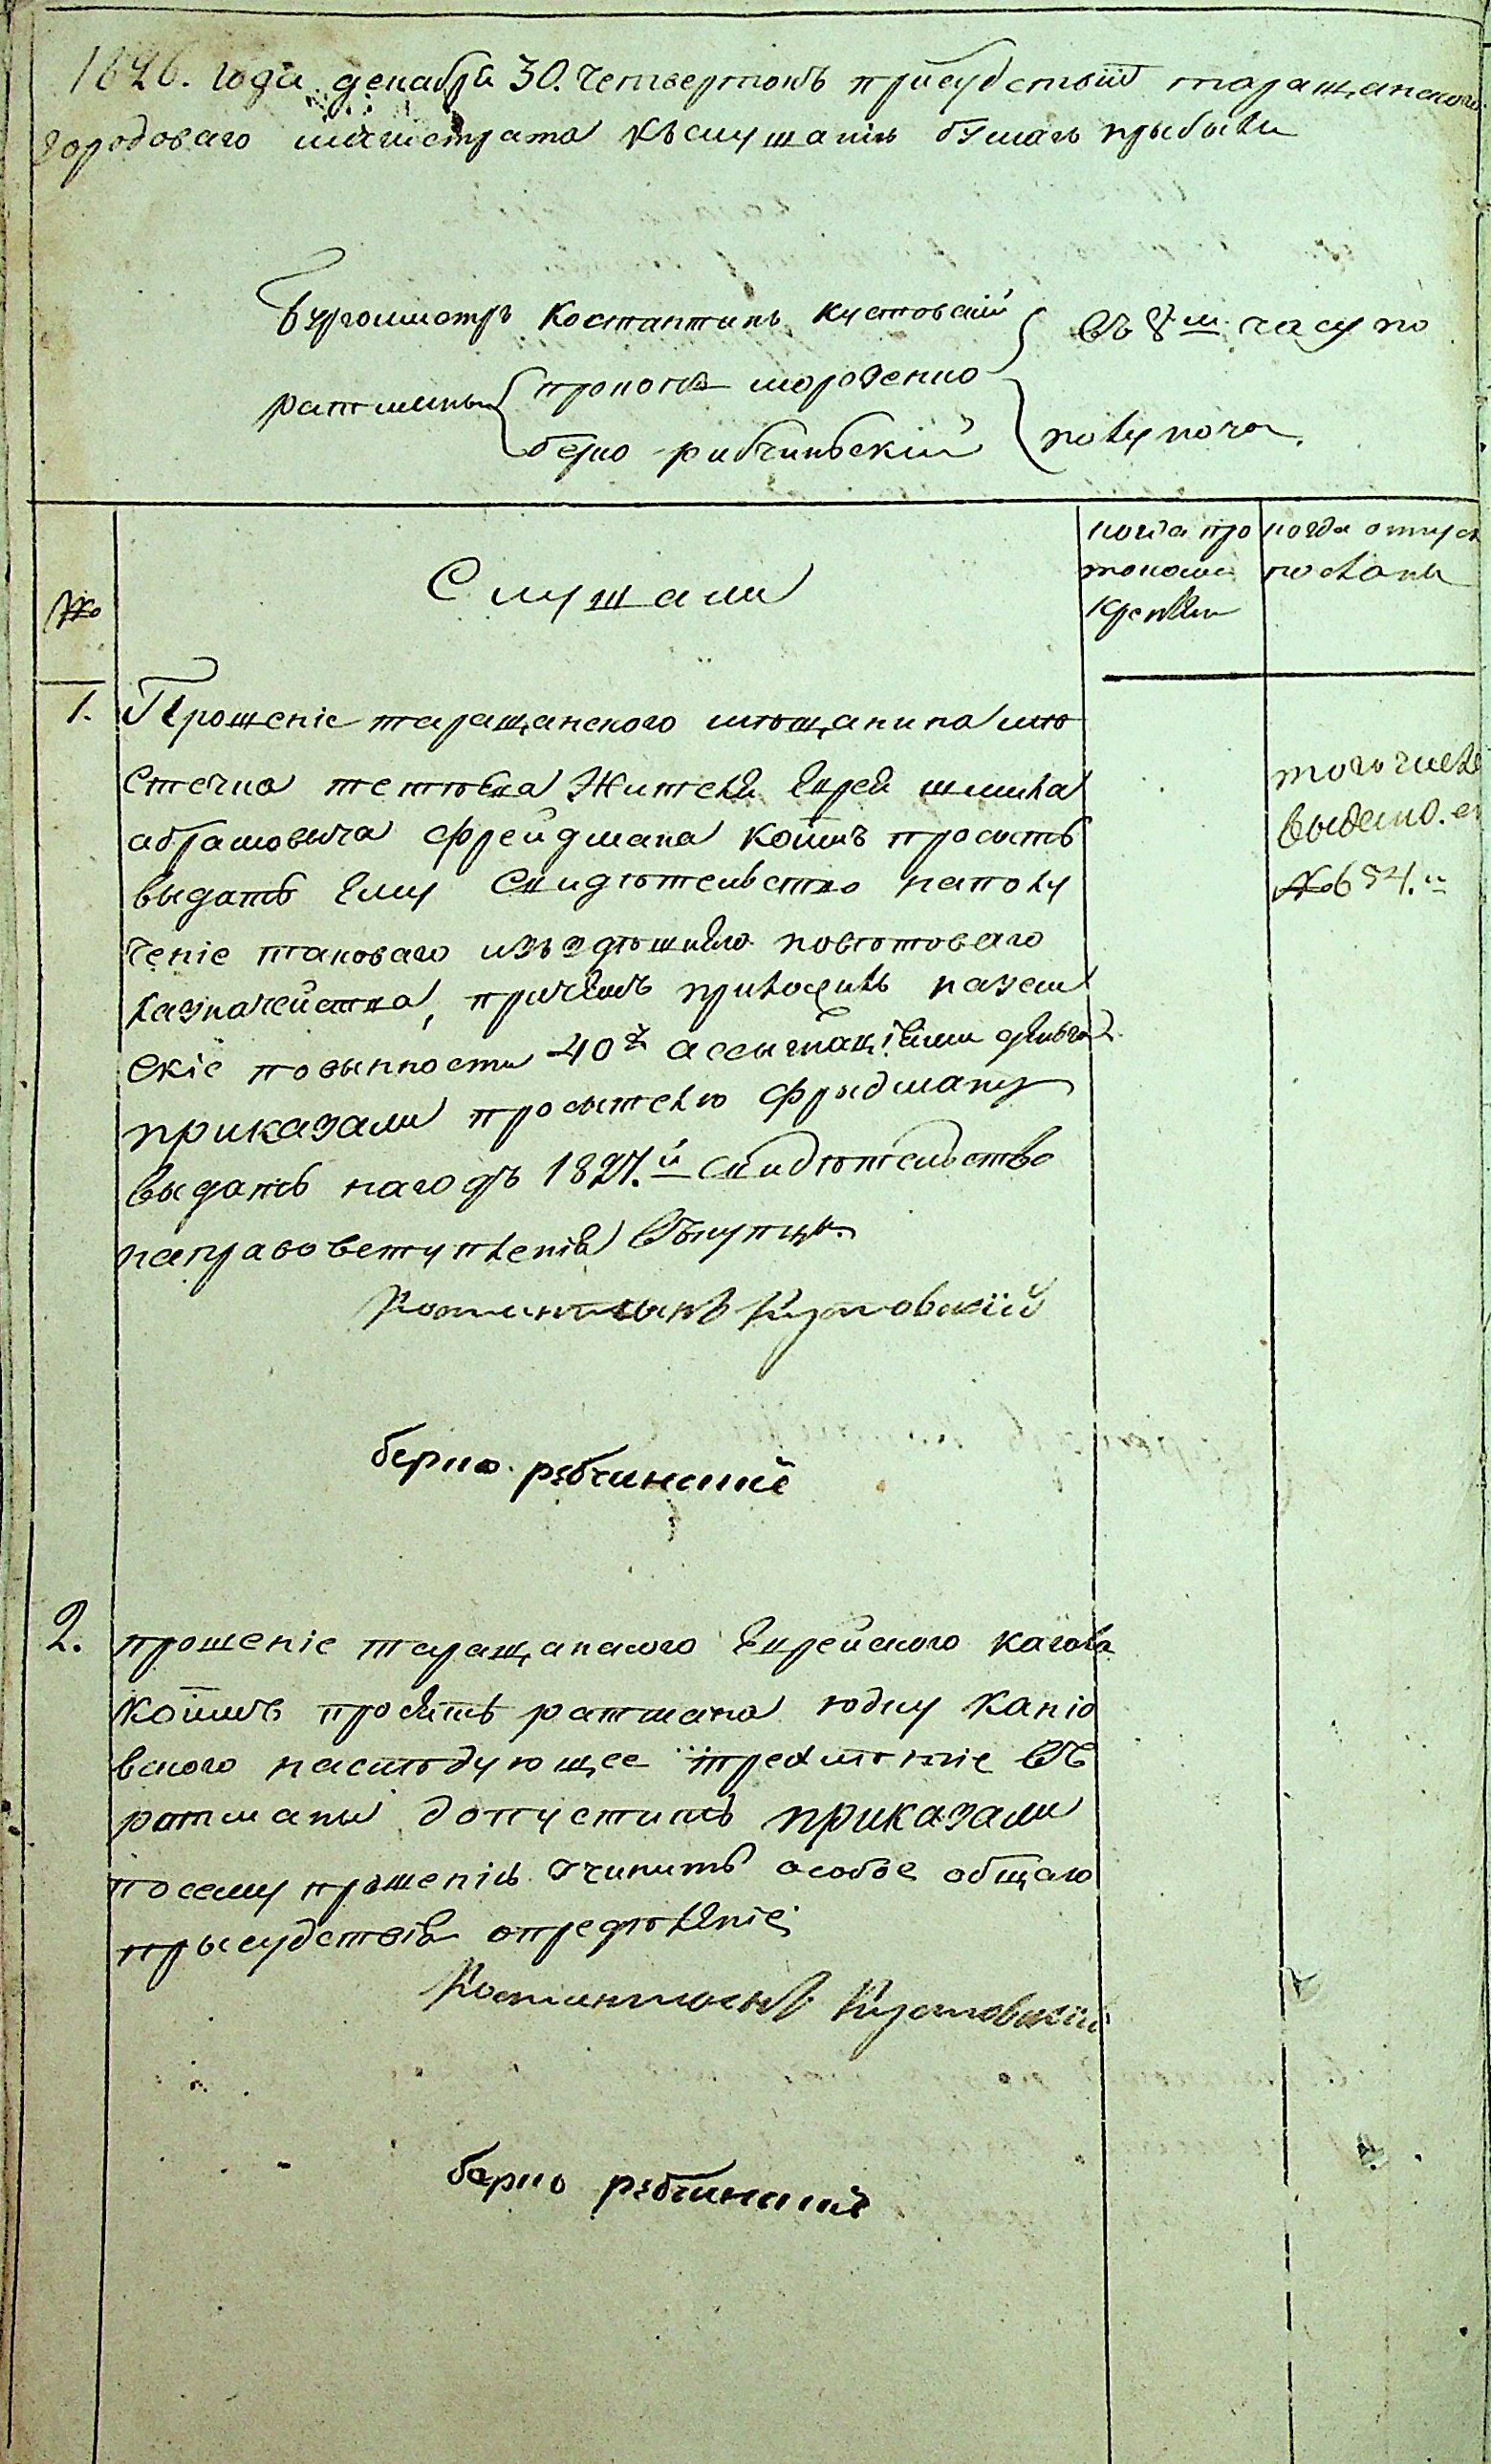 1826. года декабря 30. Четвертокъ присудствія таращанского
городоваго магистрата къ слушанію бумагъ прыбыли
Бургомистръ Костантинъ Кустовскій
въ 8м часу по
ратманы
прокопъ морозенко
берко рибчинскій
полуночи.
№
Слушали
когда про
токолы
крепленъ
когда отпуск
посланы
1. Прошеніе таращанского мѣщанина мѣ
стечка тетіѣвка Жителя Еврея шмила
абрамовича Фрейдмана коимъ проситъ
выдать Ему Свидѣтельство на полу
ченіе таковаго изъ здѣшняго повѣтоваго
казначейства, причемъ приложилъ казен
скіе повынности 40 ассыгнаціями денгы
приказали просытелю Фрыдману
выдать на годъ 1827.й Свидѣтельство
на право вступленія въ купцы.
Костантынъ Кустовскій
берко рѣбчинскій
того числа
выдано
№ 654.
2. прошеніе таращанского Еврейского кагала
коимъ просятъ ратмана юдку каніо
вского на слѣдующее трехлѣтіе въ
ратманы допустить приказали
по сему прошенію учинить особое общаго
прысудствія опредѣленіе
Костантынъ Кустовскій
берко рѣбчинскій